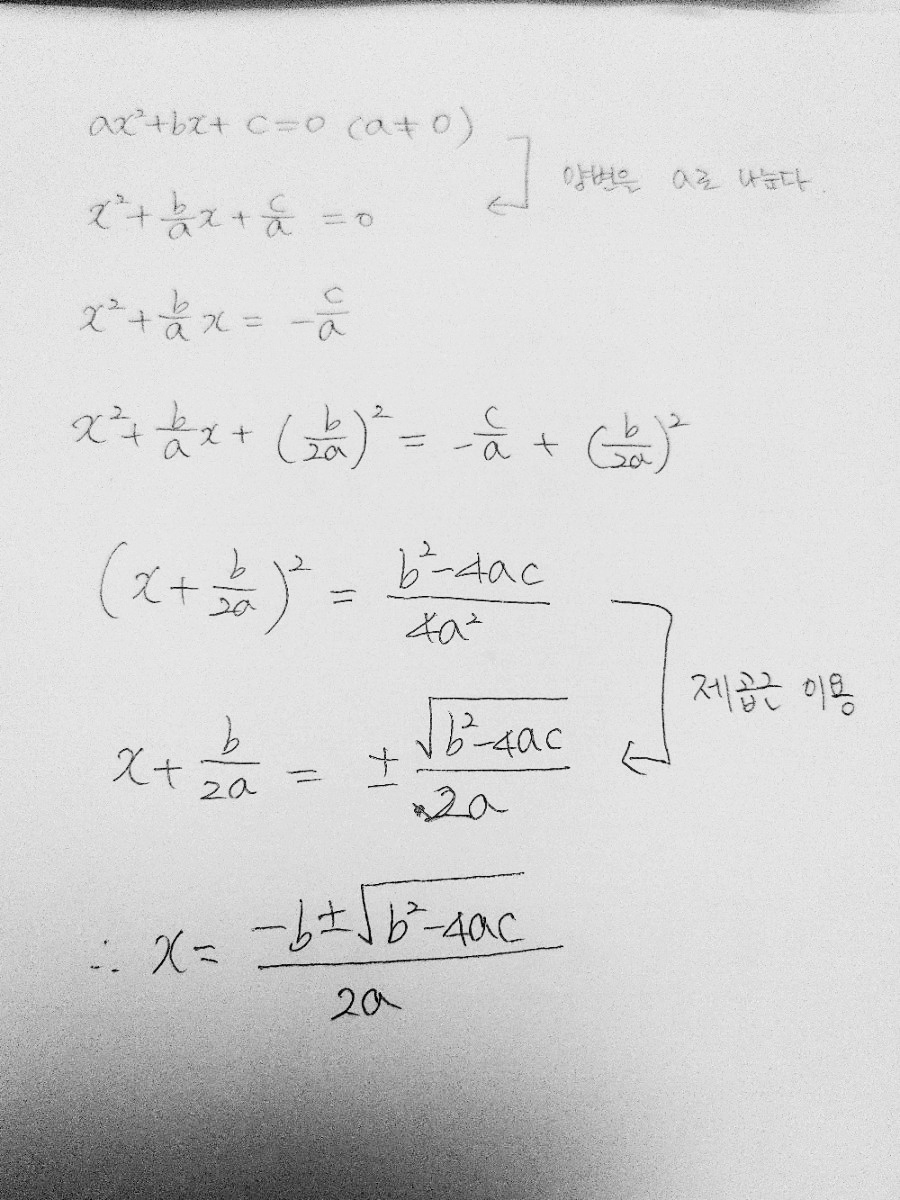 ax²+bx+c=0 (a≠0)
양변을 a로 나눈다.
x²+b/a x+c/a=0
x²+b/a x=-c/a
x²+b/a x+(b/2a)²=-c/a+(b/2a)²
(x+b/2a)²=(b²-4ac)/4a²
제곱근 이용
x+b/2a=±√(b²-4ac)/2a
∴ x=(-b±√(b²-4ac))/2a